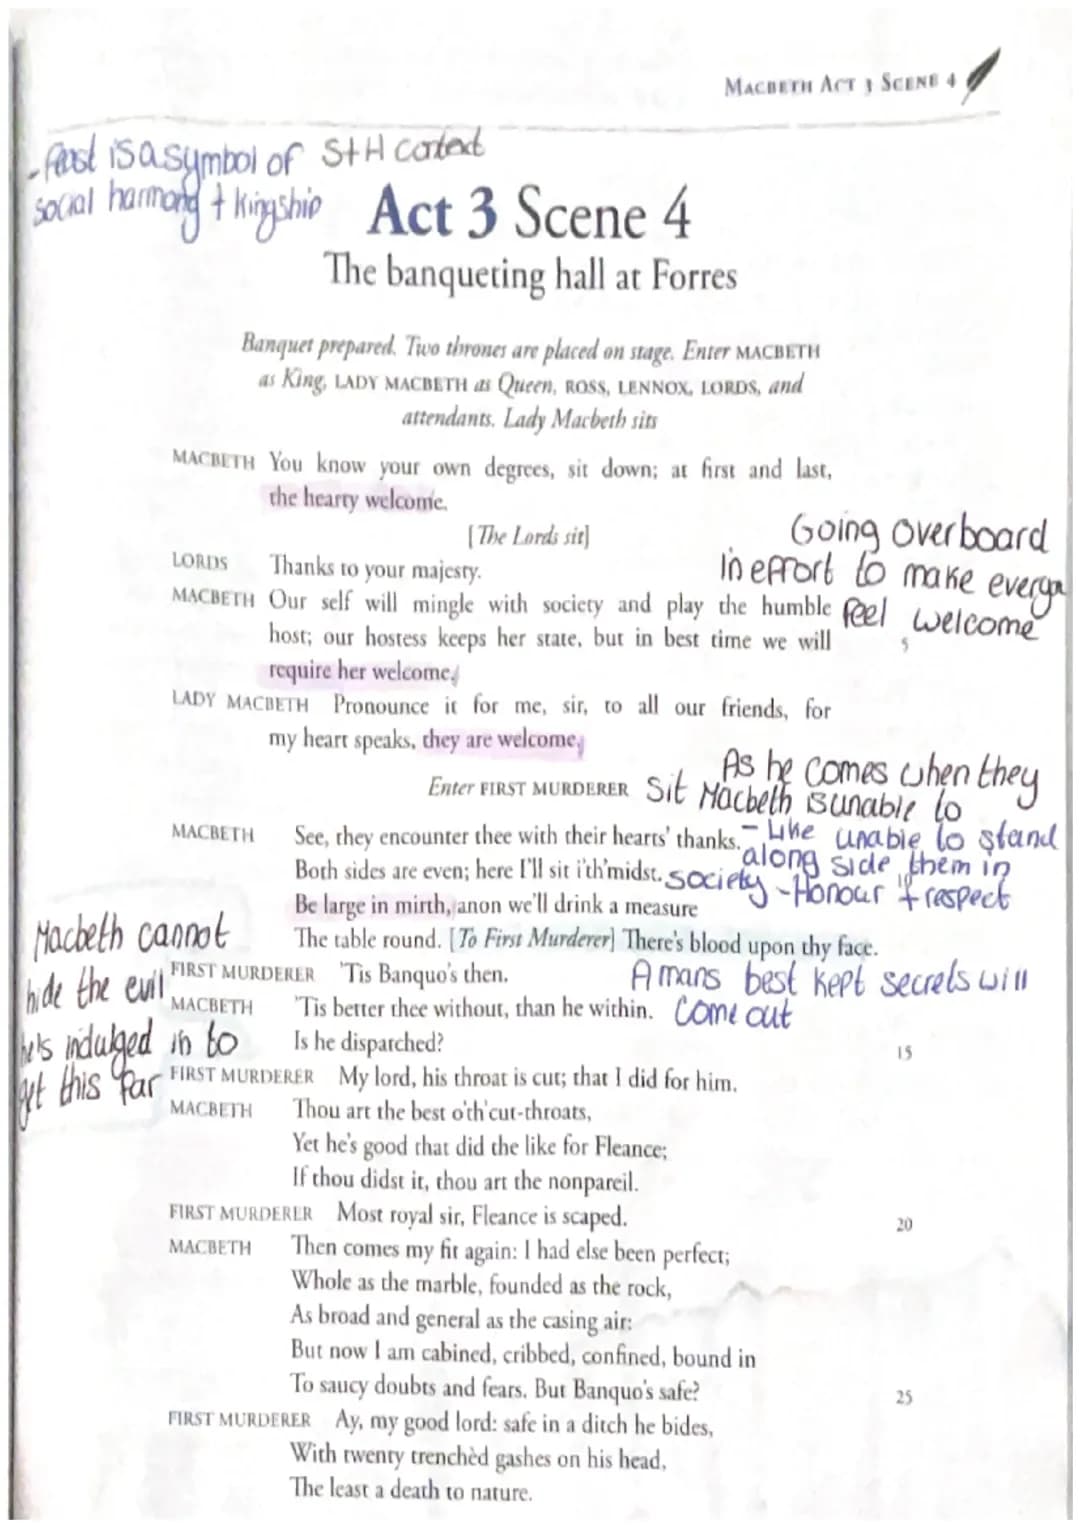 MACBETH ACT 3 SCENE 4
- feast is a symbol of S+H context
social harmony + kingship
Act 3 Scene 4
The banqueting hall at Forres
Banquet prepared. Two thrones are placed on stage. Enter MACBETH
as King, LADY MACBETH as Queen, ROSS, LENNOX, LORDS, and
attendants. Lady Macbeth sits
MACBETH You know your own degrees, sit down; at first and last,
the hearty welcome.
[The Lords sit]
Going overboard
in effort to make everyo
feel welcome
LORDS Thanks to your majesty.
MACBETH Our self will mingle with society and play the humble
host; our hostess keeps her state, but in best time we will 5
require her welcome.
LADY MACBETH Pronounce it for me, sir, to all our friends, for
my heart speaks, they are welcome.
Enter FIRST MURDERER
As he comes when they
sit Macbeth is unable to
- Like unable to stand
along side them in
society - Honour + respect
MACBETH See, they encounter thee with their hearts' thanks.
Both sides are even; here I'll sit i'th'midst. 10
Be large in mirth, anon we'll drink a measure
The table round. [To First Murderer] There's blood upon thy face.
Macbeth cannot
hide the evil
he's indulged in to
get this far
FIRST MURDERER 'Tis Banquo's then.
A mans best kept secrets will
come out
MACBETH 'Tis better thee without, than he within.
Is he disparched? 15
FIRST MURDERER My lord, his throat is cut; that I did for him.
MACBETH Thou art the best o'th'cut-throats,
Yet he's good that did the like for Fleance;
If thou didst it, thou art the nonpareil.
FIRST MURDERER Most royal sir, Fleance is scaped. 20
MACBETH Then comes my fit again: I had else been perfect;
Whole as the marble, founded as the rock,
As broad and general as the casing air:
But now I am cabined, cribbed, confined, bound in
To saucy doubts and fears. But Banquo's safe? 25
FIRST MURDERER Ay, my good lord: safe in a ditch he bides,
With twenty trenchèd gashes on his head,
The least a death to nature.